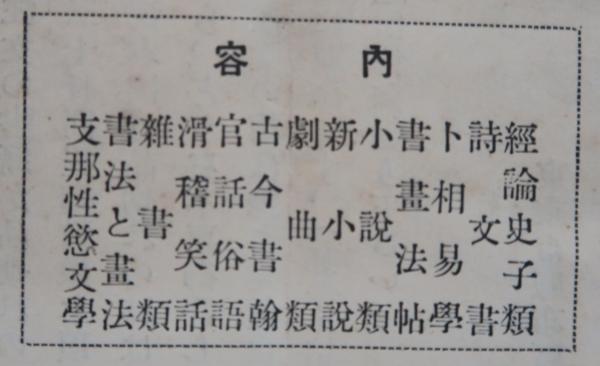 內容
經論史子類
詩文書
卜相易學
書畫法帖
小說類
新小說
劇曲類
古今書翰
官話俗語
滑稽笑話
雜書類
書法と畫法
支那性慾文學